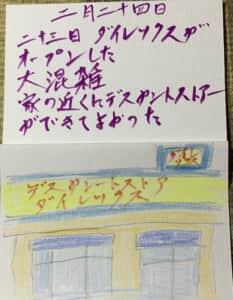 二月二十四日
二十三日 ダイレックスが
オープンした
大混雑
家の近くにデスカントストアー
ができてよかった
デスカントストア
ダイレックス